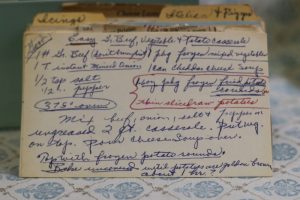 Icings
Italian & Pizza
Easy Gr. Beef, Vegetable & Potato casserole
1# Gr. Beef 1 pkg frozen mixed vegetables
1 T instant Minced Onion 1 can cheddar cheese soup
1/2 tsp salt
1/2 t. pepper
pkg frozen fried potato rounds
375° oven
thin sliced raw potatoes
Mix beef, onion, salt & pepper in
ungreased 2 qt. casserole. Put veg.
on top. Pour cheese soup over.
Top with frozen potato rounds.
Bake uncovered until potatoes are golden brown
about 1 hr.